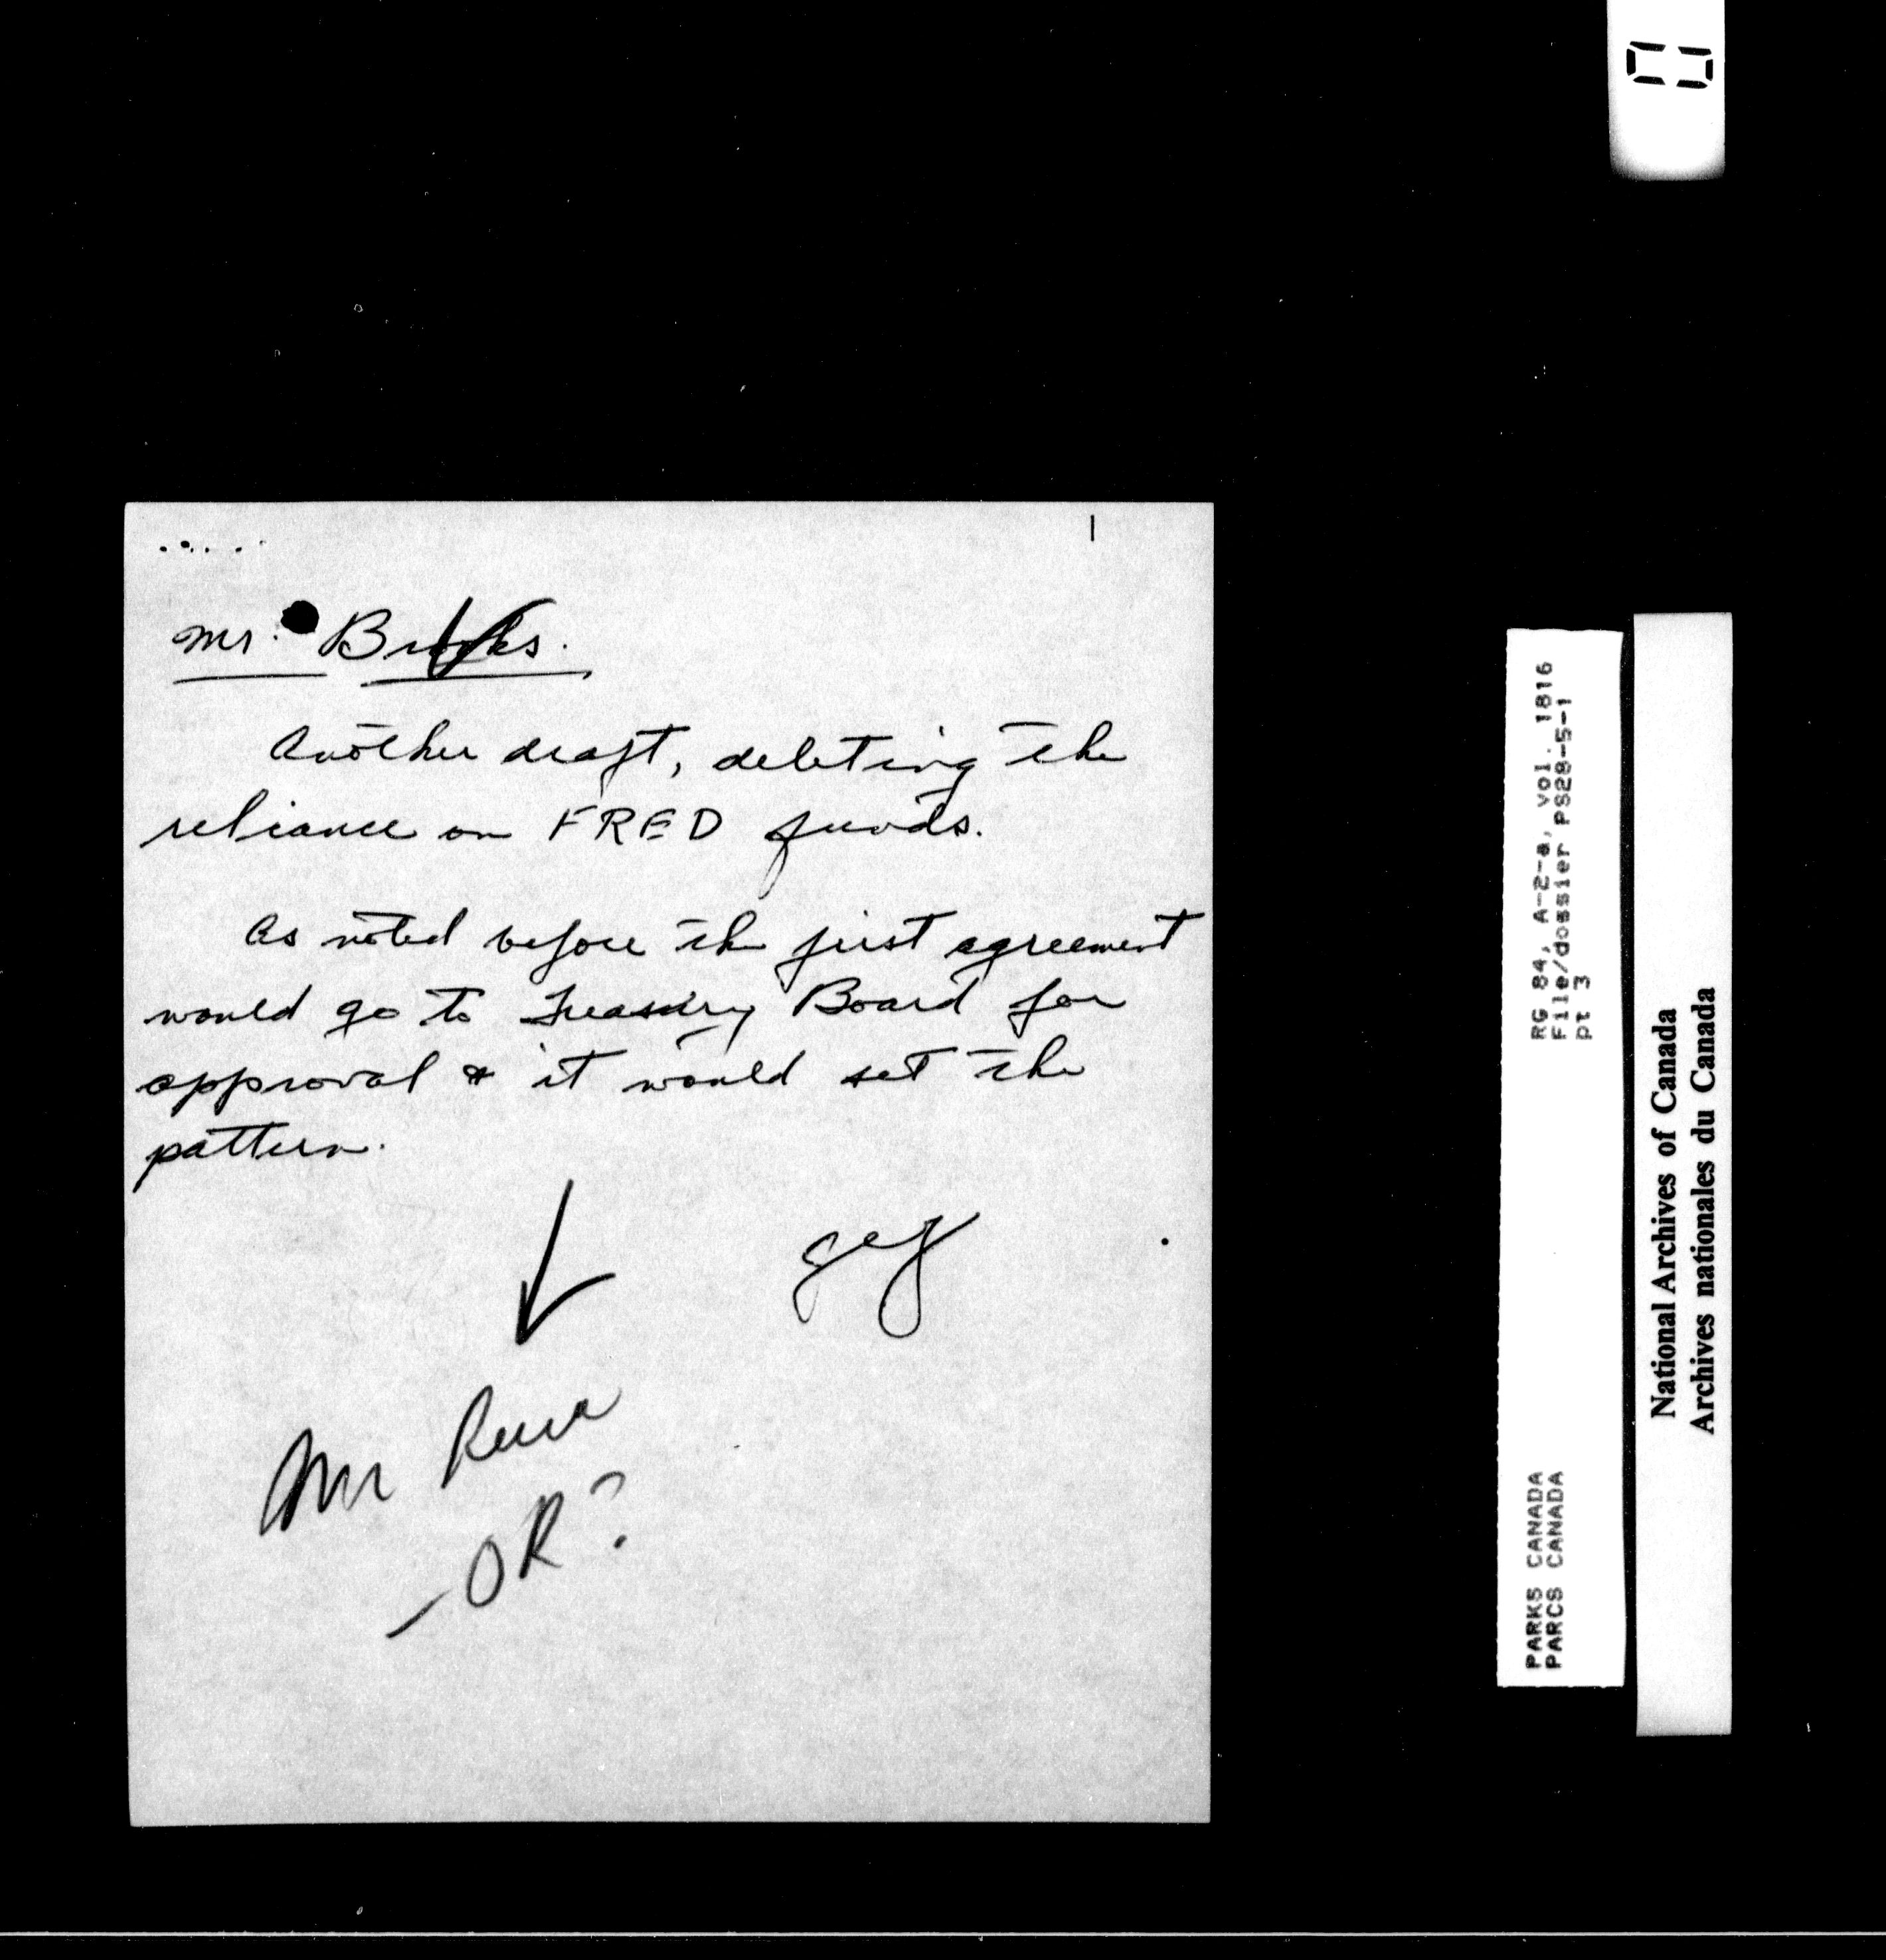 Mr. Brooks.
Another draft, deleting the
reliance on FRED funds.
As noted before the first agreement
would go to Treasury Board for
approval & it would set the
pattern.
Mr
- OK?
RG 84, A-2-a, vol. 1816
File/dossier PS28-5-1
pt 3
PARKS CANADA
PARCS CANADA
National Archives of Canada
Archives nationales du Canada